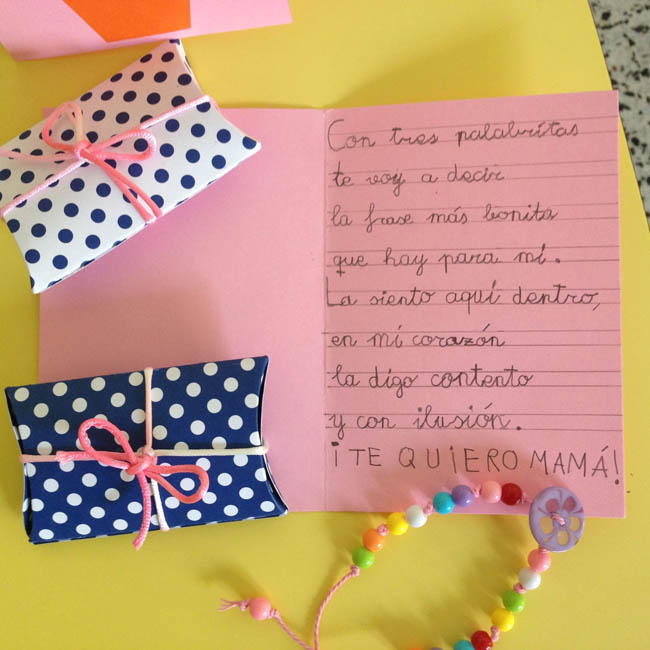 Con tres palabritas
te voy a decir
la frase más bonita
que hay para mí.
La siento aquí dentro,
en mi corazón
la digo contento
y con ilusión.
¡TE QUIERO MAMÁ!